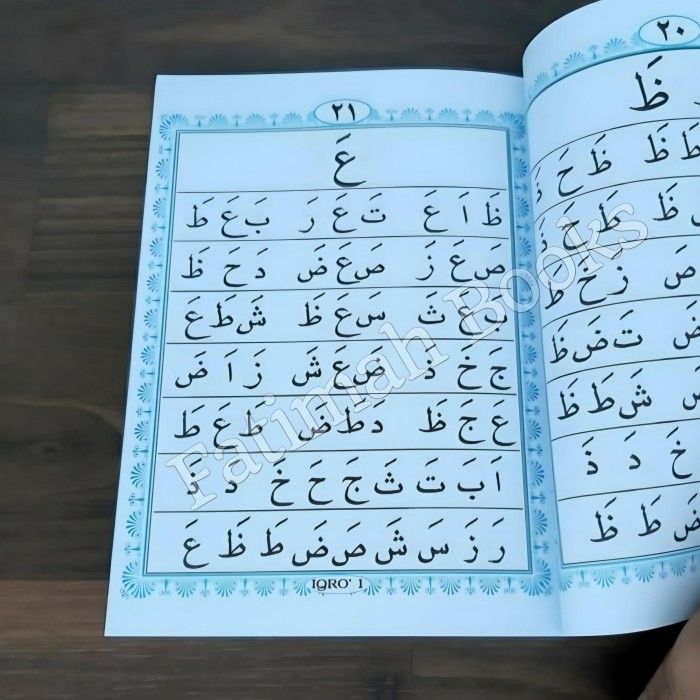 ٢٠
ظَ
ظَ ظَ حَ
ظَ ظَ حَ
صَ زَ خَ ظَ
تَ ضَ ظَ
شَ طَ ظَ
خَ دَ ذَ
ضَ طَ ظَ
٢١
عَ
ظَ اَ عَ تَ عَ رَ بَ عَ طَ
صَ عَ زَ صَ عَ ضَ دَ حَ ظَ
بَ عَ ثَ سَ عَ ظَ شَ طَ عَ
جَ خَ ذَ صَ عَ شَ زَ اَ ضَ
عَ جَ ظَ دَ طَ ضَ طَ عَ طَ
اَ بَ تَ ثَ جَ حَ خَ دَ ذَ
رَ زَ سَ شَ صَ ضَ طَ ظَ عَ
IQRO' 1
Fatimah Books